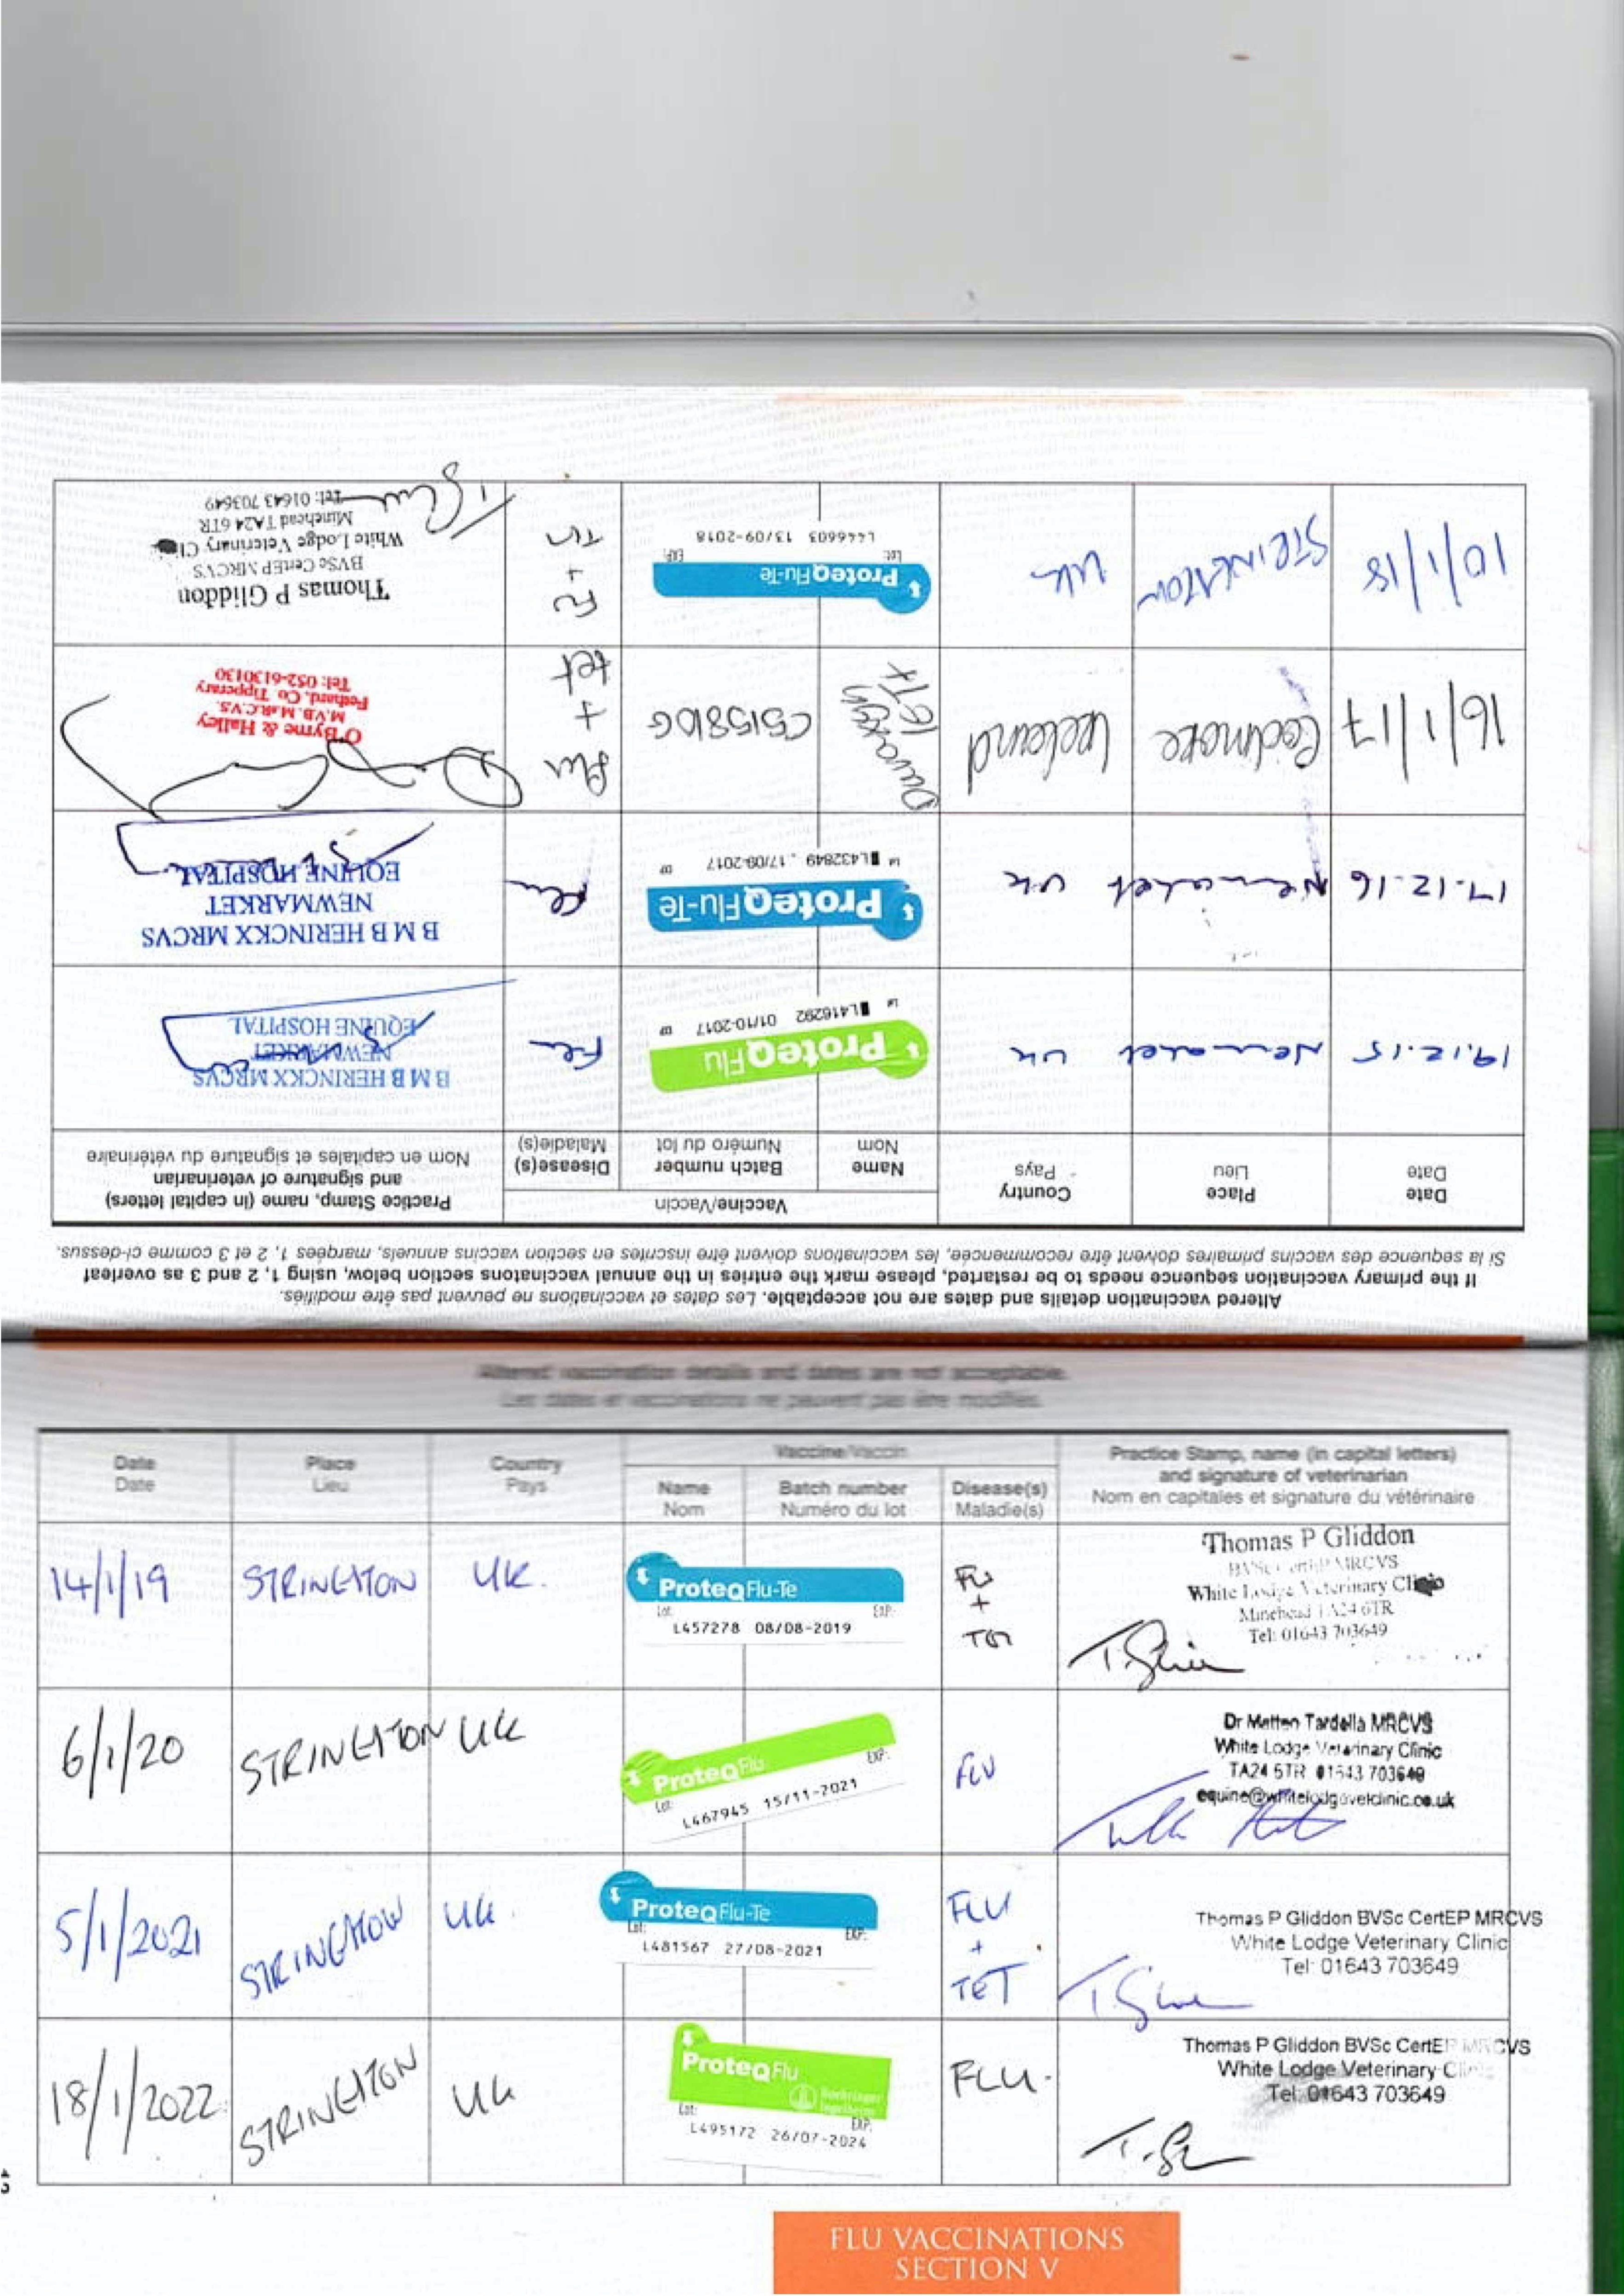 Altered vaccination details and dates are not acceptable. Les dates et vaccinations ne peuvent pas être modifiés.
If the primary vaccination sequence needs to be restarted, please mark the entries in the annual vaccinatons section below, using 1, 2 and 3 as overleaf
Si la sequence des vaccins primaires doivent être recommencée, les vaccinations doivent être inscrites en section vaccins annuels, marqées 1, 2 et 3 comme ci-dessus.
Date
Date
Place
Lieu
Country
Pays
Vaccine/Vaccin
Name
Nom
Batch number
Numéro du lot
Disease(s)
Maladie(s)
Practice Stamp, name (in capital letters)
and signature of veterinarian
Nom en capitales et signature du vétérinaire
19.12.15
Newmarket
UK
ProteqFlu
L416292 01/10-2017
Flu
B M B HERINCKX MRCVS
NEWMARKET
EQUINE HOSPITAL
17.12.16
Newmarket
UK
ProteqFlu-Te
L432849 17/09-2017
Flu
B M B HERINCKX MRCVS
NEWMARKET
EQUINE HOSPITAL
16/1/17
Ireland
C515810G
flu
+
tet
O'Byrne & Halley
M.V.B. M.R.C.V.S.
Fethard, Co. Tipperary
Tel: 052-6130130
10/1/18
STRINGSTON
UK
ProteqFlu-Te
Lot: EXP:
L444603 13/09-2018
Thomas P Gliddon
BVSc CertEP MRCVS
White Lodge Veterinary Clinic
Minehead TA24 6TR
Tel: 01643 703649
Altered vaccination details and dates are not acceptable.
Les dates et vaccinations ne peuvent pas être modifiés.
Date
Date
Place
Lieu
Country
Pays
Vaccine/Vaccin
Name
Nom
Batch number
Numéro du lot
Disease(s)
Maladie(s)
Practice Stamp, name (in capital letters)
and signature of veterinarian
Nom en capitales et signature du vétérinaire
14/1/19
STRINGSTON
UK.
ProteqFlu-Te
Lot: EXP:
L457278 08/08-2019
Thomas P Gliddon
BVSc CertEP MRCVS
White Lodge Veterinary Clinic
Minehead TA24 6TR
Tel: 01643 703649
6/1/20
STRINGSTON
UK
ProteqFlu
Lot: EXP:
L467945 15/11-2021
FLU
Dr Matteo Tardella MRCVS
White Lodge Veterinary Clinic
TA24 5TR 01643 703649
equine@whitelodgevetclinic.co.uk
5/1/2021
STRINGSTON
UK.
ProteqFlu-Te
Lot: EXP:
L481567 27/08-2021
FLU
+
TET
Thomas P Gliddon BVSc CertEP MRCVS
White Lodge Veterinary Clinic
Tel: 01643 703649
18/1/2022
STRINGSTON
UK
ProteqFlu
Boehringer
Ingelheim
Lot: EXP:
L495172 26/07-2024
FLU.
Thomas P Gliddon BVSc CertEP MRCVS
White Lodge Veterinary Clinic
Tel: 01643 703649
FLU VACCINATIONS
SECTION V